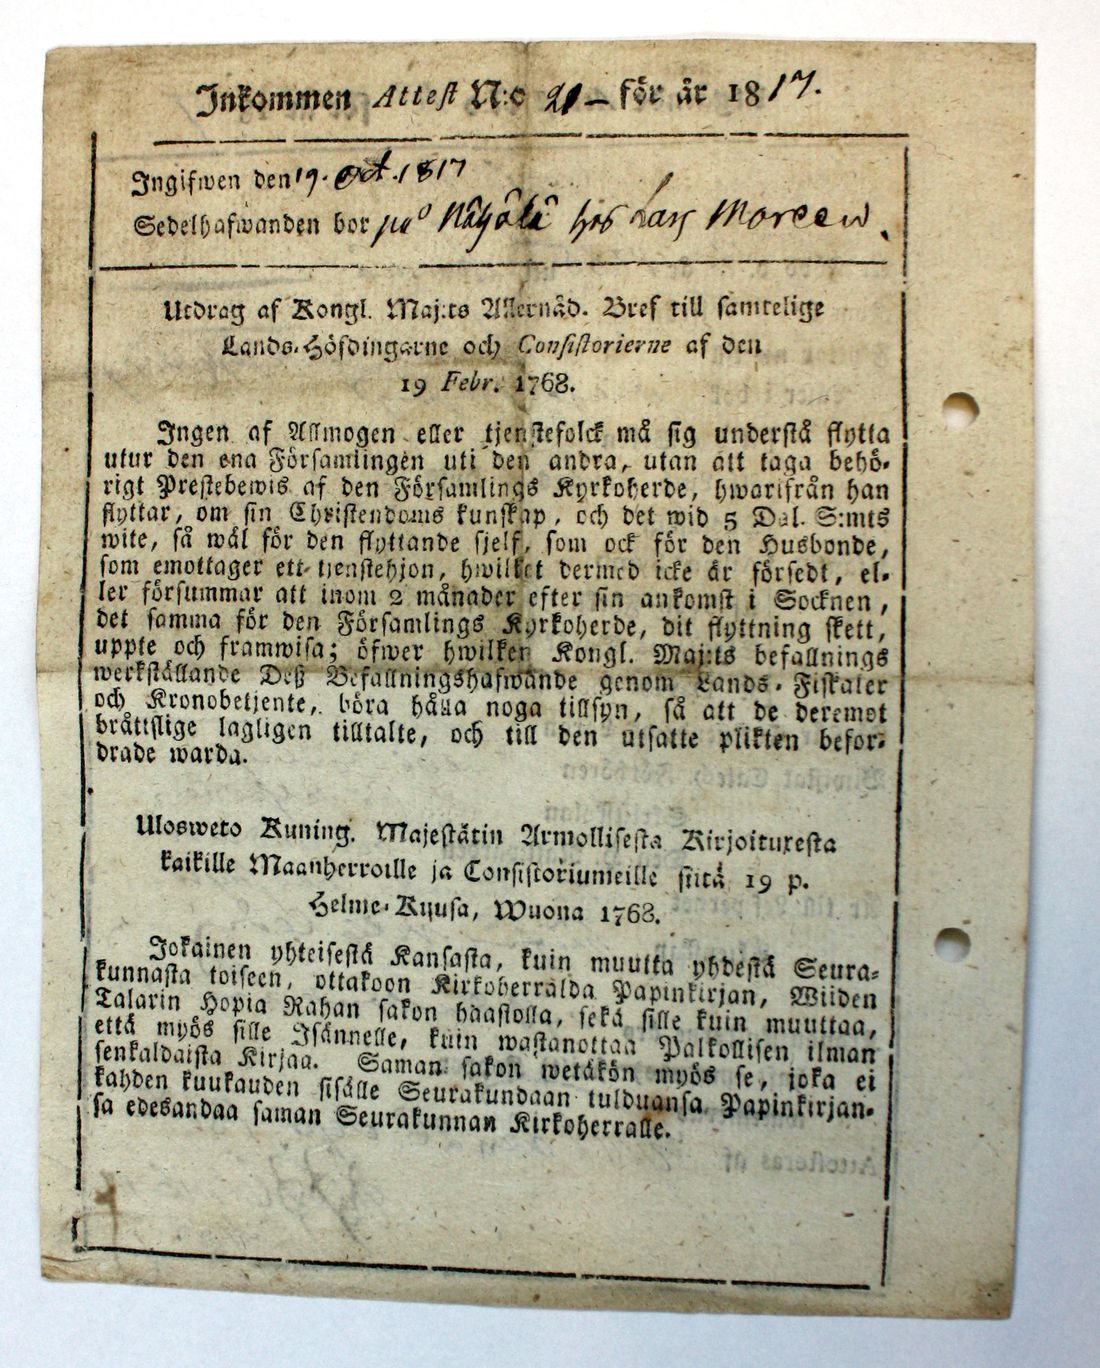 Inkommen Attest N:o 21 – för år 1817.
Ingifwen den 19. Oct. 1817
Sedelhafwanden bor på hos Lars
Utdrag af Kongl. Maj:ts Allernåd. Bref till samtelige
Lands-Höfdingarne och Consistorierne af den
19 Febr. 1768.
Ingen af Allmogen eller tjenstefolck må sig understå flytta
utur den ena Församlingen uti den andra, utan att taga behö-
rigt Prestebewis af den Församlings Kyrkoherde, hwarifrån han
flyttar, om sin Christendoms kunskap, och det wid 5 Dal. S:mts
wite, så wäl för den flyttande sjelf, som ock för den Husbonde,
som emottager ett tjenstehjon, hwilket dermed icke är försedt, el-
ler försummar att inom 2 månader efter sin ankomst i Socknen,
det samma för den Församlings Kyrkoherde, dit flyttning skett,
uppte och framwisa; öfwer hwilken Kongl. Maj:ts befallnings
werkställande Deß Befallningshafwande genom Lands-Fiskaler
och Kronobetjente, böra hålla noga tillsyn, så att de deremot
bråttslige lagligen tilltalte, och till den utsatte plikten befor-
drade warda.
Ulosweto Kuning. Majestätin Armollisesta Kirjoituxesta
kaikille Maanherroille ja Consistoriumeille siitä 19 p.
Helme-Kuusa, Wuona 1768.
Jokainen yhteisestä Kansasta, kuin muutta yhdestä Seura-
kunnasta toiseen, ottakoon Kirkoherralda Papinkirjan, Wiiden
Talarin Hopia Rahan sakon haastolla, sekä sille kuin muuttaa,
että myös sille Isännelle, kuin wastanottaa Palkollisen ilman
senkaldaista Kirjaa. Saman sakon wetäkön myös se, joka ei
kahden kuukauden sisälle Seurakundaan tulduansa Papinkirjan-
sa edesandaa saman Seurakunnan Kirkoherralle.